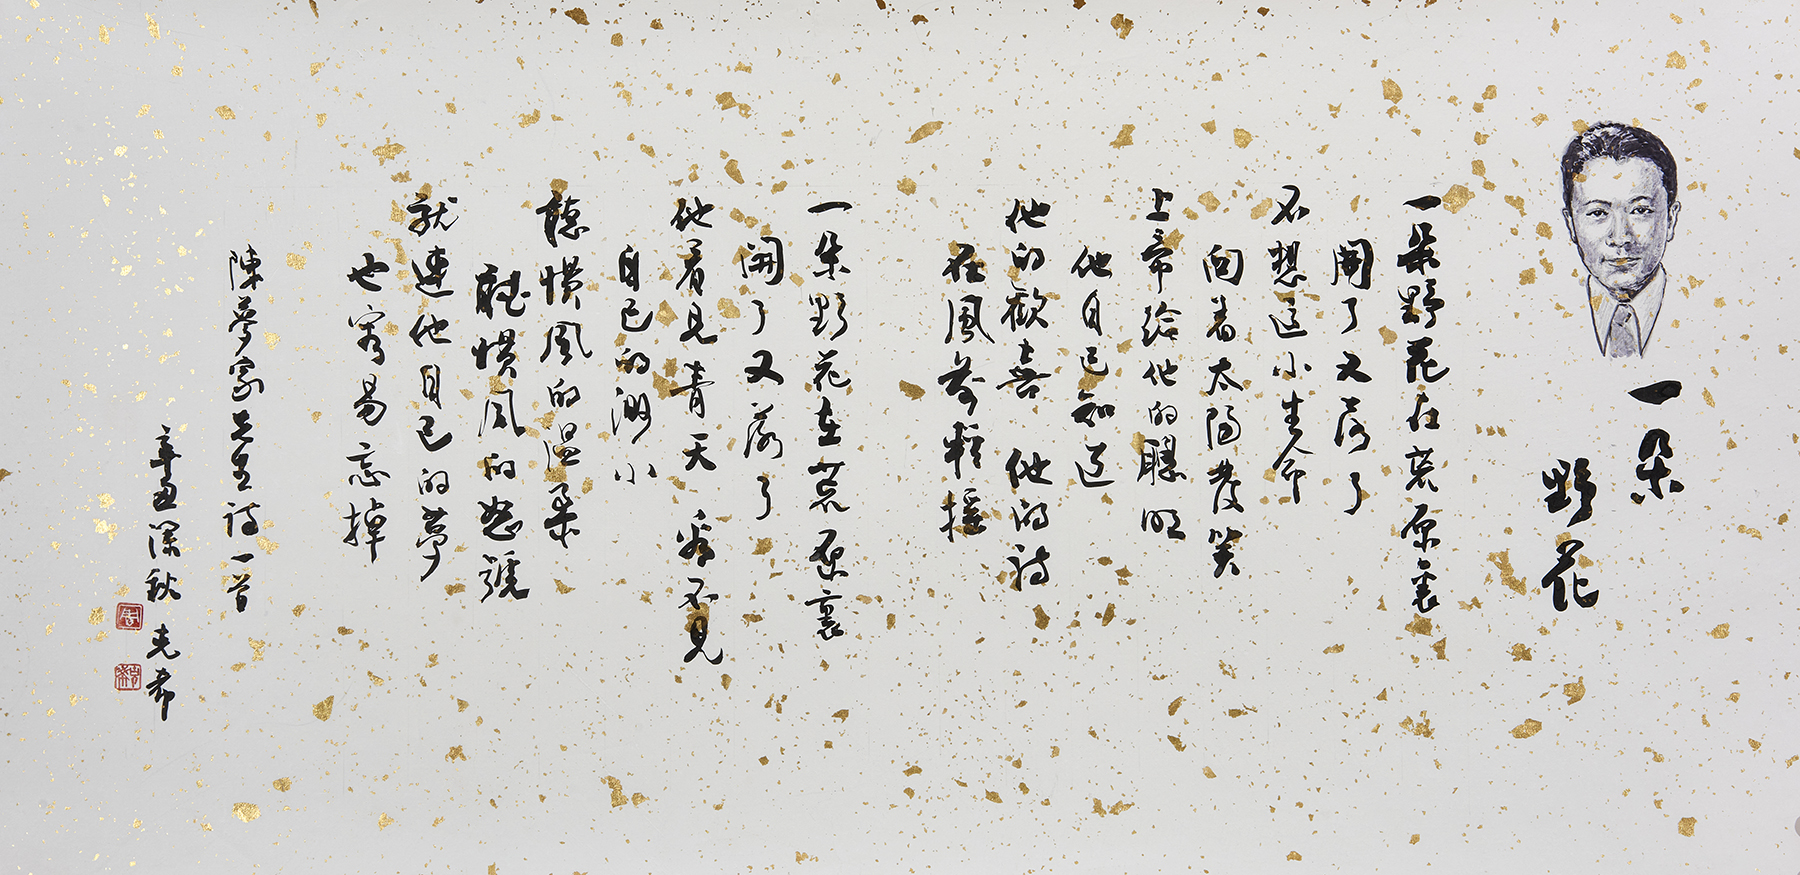 一朵
野花
一朵野花在荒原裏
開了又落了
不想這小生命
向着太陽發笑
上帝給他的聰明
他自己知道
他的歡喜 他的詩
在風前輕搖
一朵野花在荒原裏
開了又落了
他看見青天 看不見
自己的渺小
聽慣風的溫柔
聽慣風的怒號
就連他自己的夢
也容易忘掉
陳夢家先生詩一首
辛丑深秋 克希